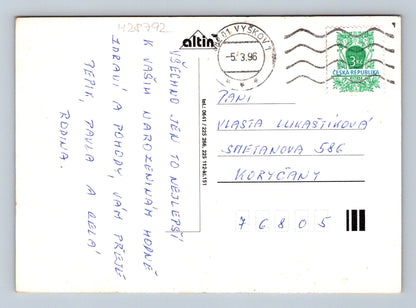 428792
VŠECHNO JEN TO NEJLEPŠÍ
K VAŠIM NAROZENINÁM HODNĚ
ZDRAVÍ A POHODY, VÁM PŘEJE
PEPIK, PAVLA A CELÁ
RODINA.
altin
tel.: 0641 / 225 266, 225 112-kl.151
VYŠKOV 1
-5.3.96
3 Kč
ČESKÁ REPUBLIKA
PANÍ
VLASTA LUKAŠTÍKOVÁ
SMETANOVA 586
KORYČANY
76805